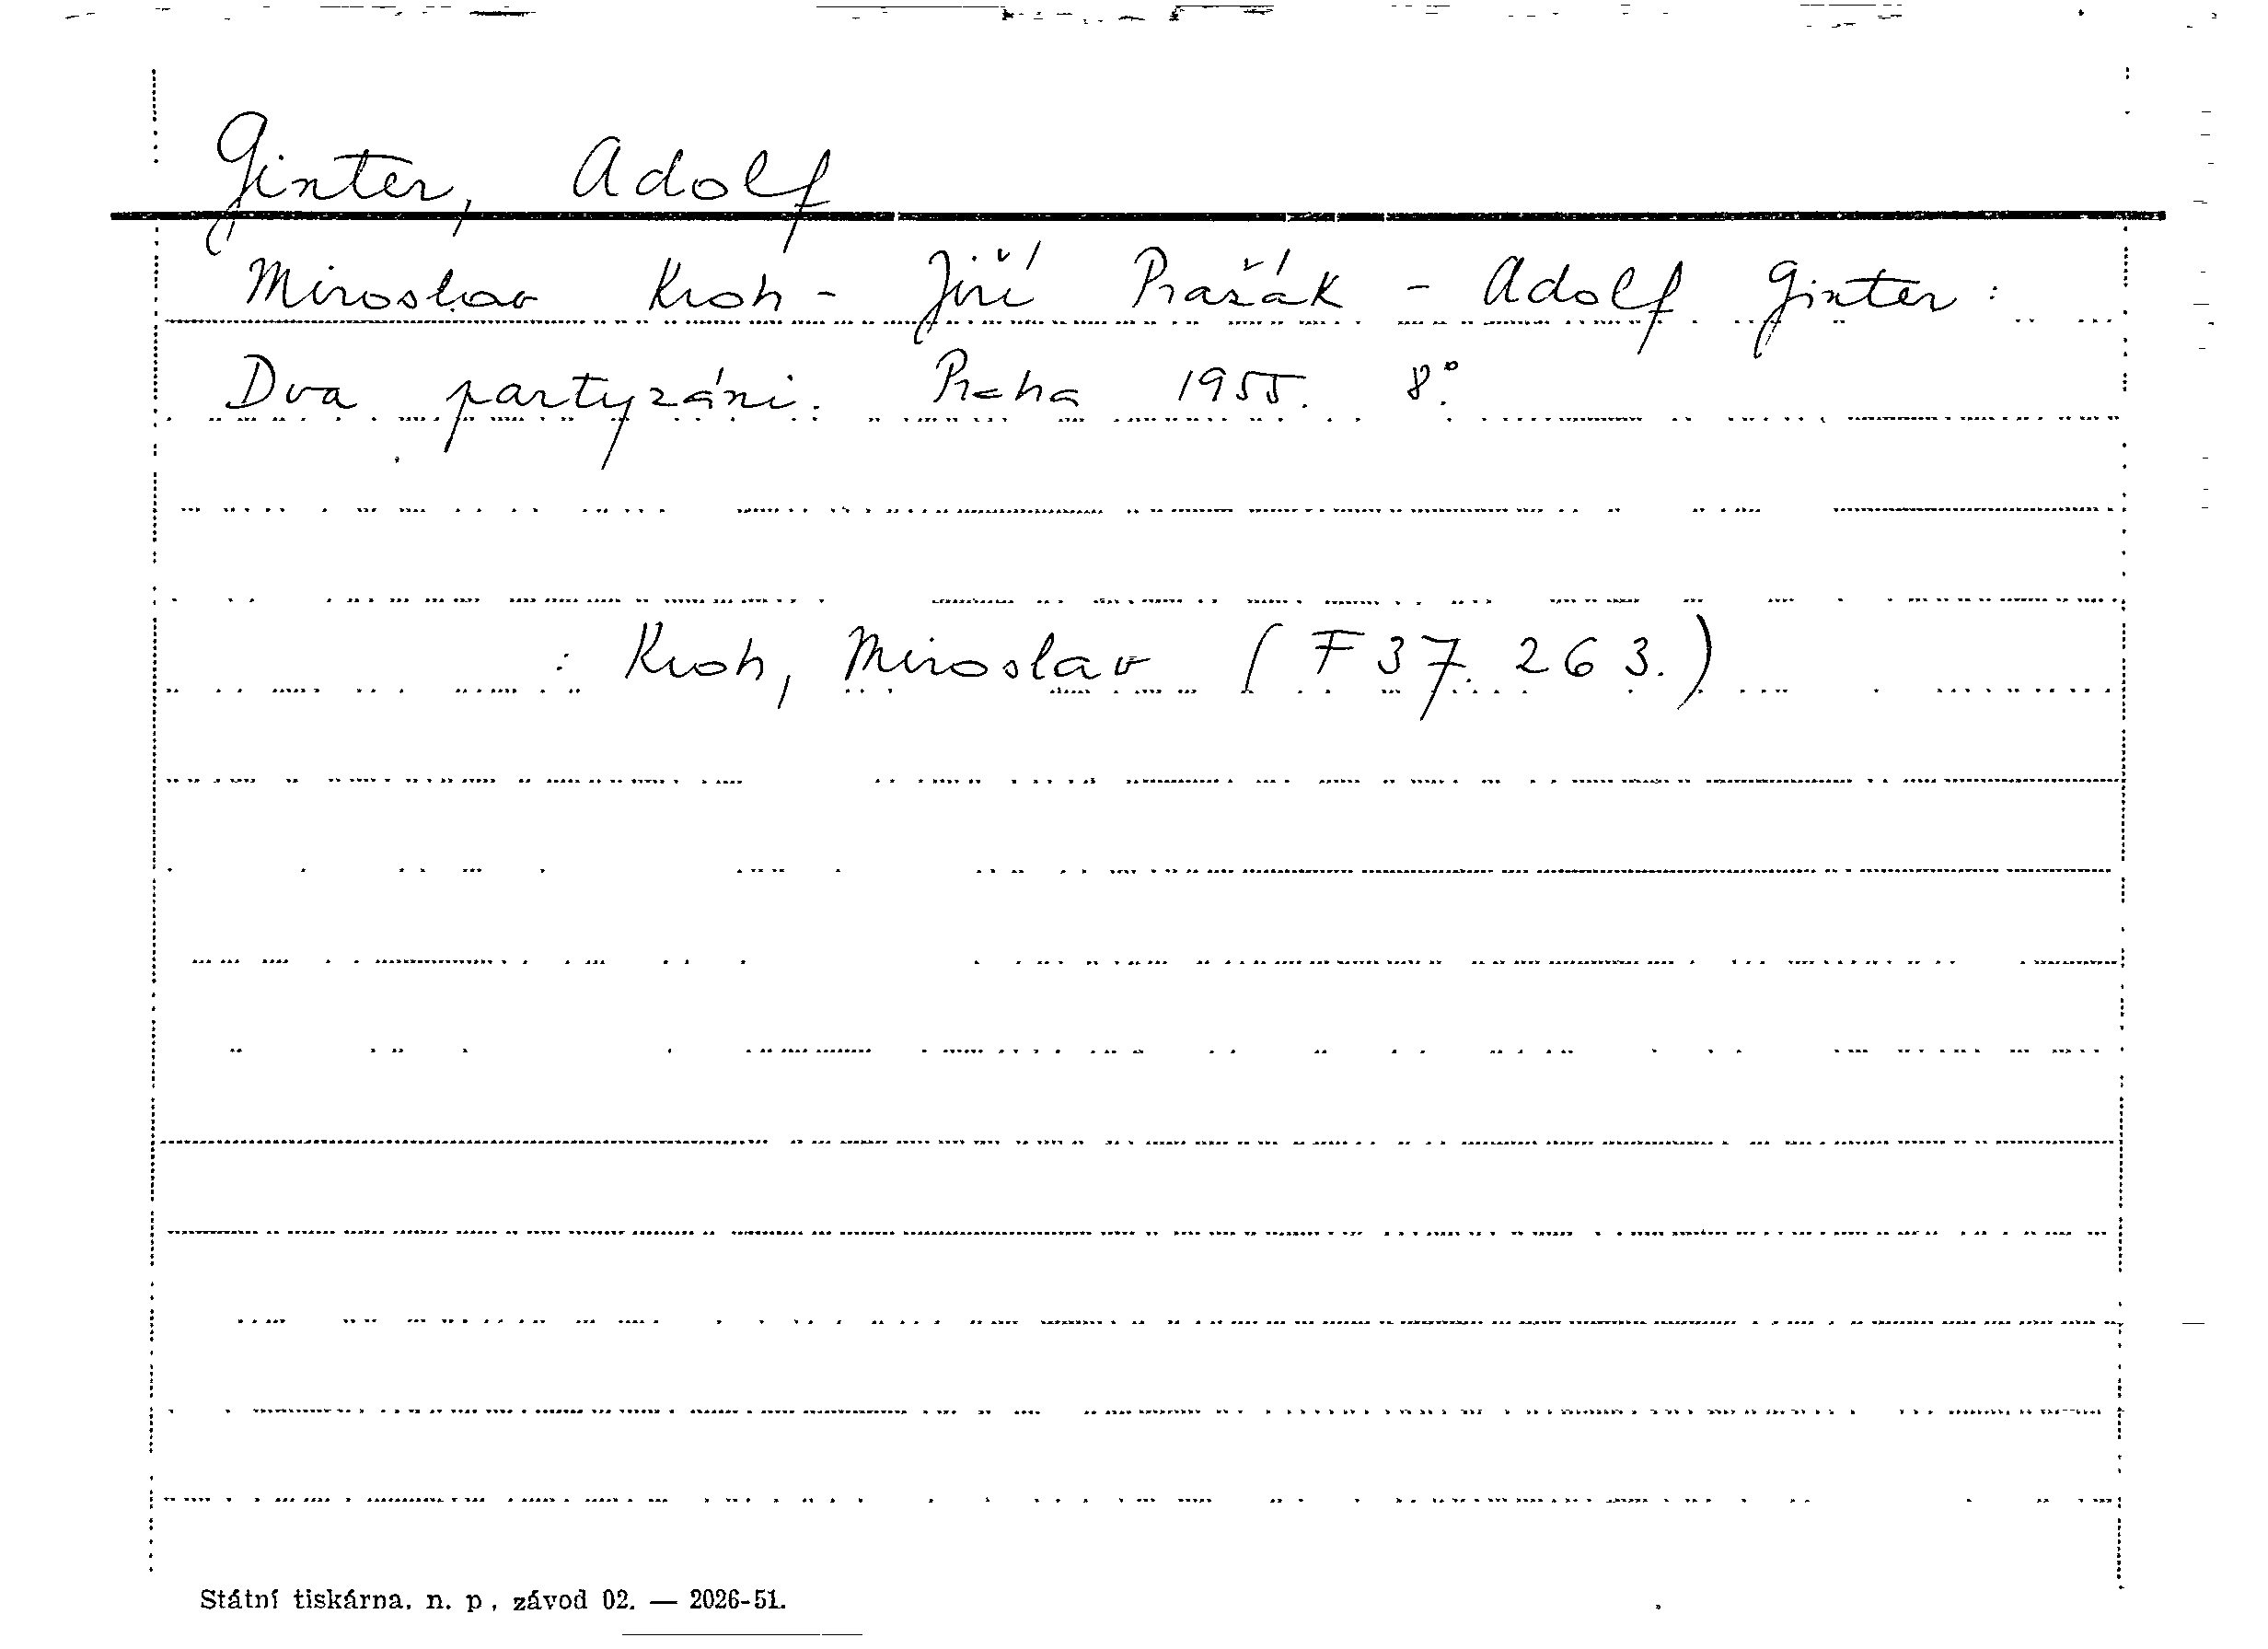 Ginter, Adolf
Miroslav Kroh - Jiří Pražák - Adolf Ginter:
Dva partyzáni. Praha 1955. 8°.
: Kroh, Miroslav (F 37.263.)
Státní tiskárna, n. p., závod 02. — 2026-51.